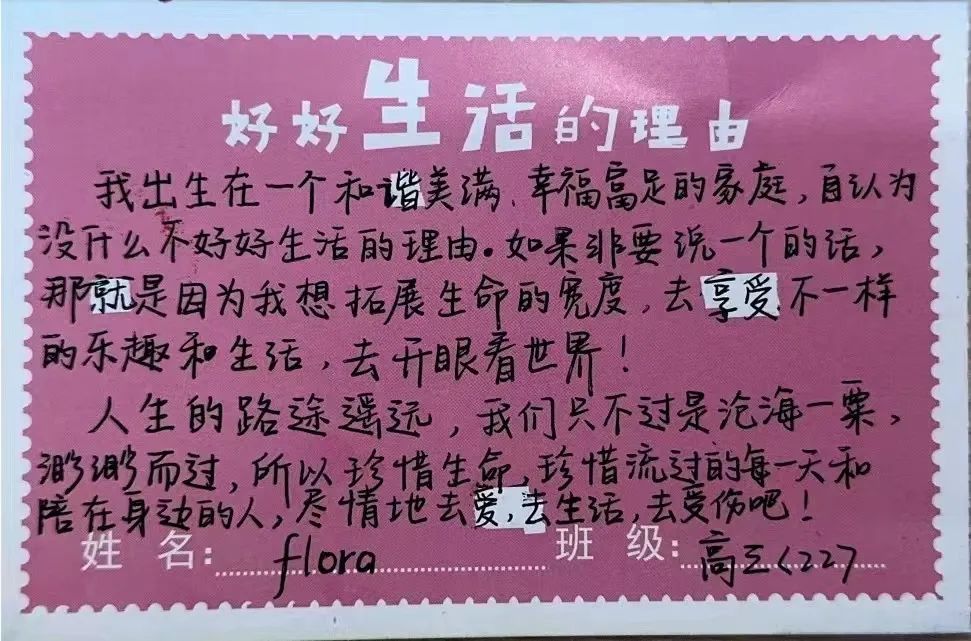 好好生活的理由
我出生在一个和谐美满、幸福富足的家庭，自认为
没什么不好好生活的理由。如果非要说一个的话，
那就是因为我想拓展生命的宽度，去享受不一样
的乐趣和生活，去开眼看世界！
人生的路途遥远，我们只不过是沧海一粟，
渺渺而过，所以珍惜生命，珍惜流过的每一天和
陪在身边的人，尽情地去爱，去生活，去受伤吧！
姓 名： flora 班 级： 高三<227